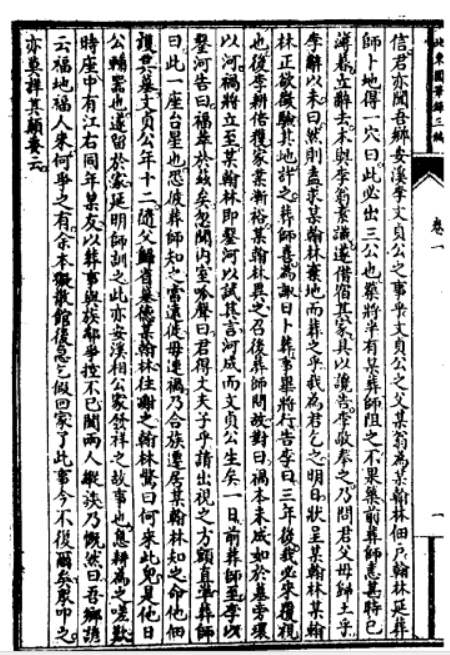 北東園筆錄三編
卷一
一
信君亦聞吾鄉安溪李文貞公之事乎文貞公之父某翁為某翰林佃戶翰林延葬
師卜地得一穴曰此必出三公也築將半有某葬師阻之不果築前葬師恚其時已
薄暮立辭去本與李翁素識遂借宿其家具以讒告李敬奉之乃問君父母歸土乎
李辭以未曰然則盍求某翰林棄地而葬之乎我為君乞之明日狀呈某翰林某翰
林正欲徵驗其地許之葬師善為諏日卜葬事畢將行告李曰三年後我必來覆視
也後李耕倍穫家業漸裕某翰林異之召後葬師問故對曰禍本未成如於墓旁環
以河禍將立至某翰林即鑿河以試其言河成而文貞公生矣一日前葬師至李以
鑿河告曰福萃於茲矣忽聞內室呱聲曰君得丈夫子乎請出視之方顱直準葬師
曰此一座台星也恐彼葬師知之當遠徙毋速禍乃合族遷居某翰林知之命他佃
護其墓文貞公年十二隨父歸省墓德某翰林往謝之翰林驚曰何來此兒是他日
公輔器也遂留於家延明師訓之此亦安溪相公家發祥之故事也息耕為之嗟歎
時座中有江右同年某友以葬事與族鄰爭控不已聞兩人縱談乃慨然曰吾鄉諺
云福地福人來何爭之有余本擬散館後急乞假回家了此事今不復爾矣殷叩之
亦莫詳其顛委云